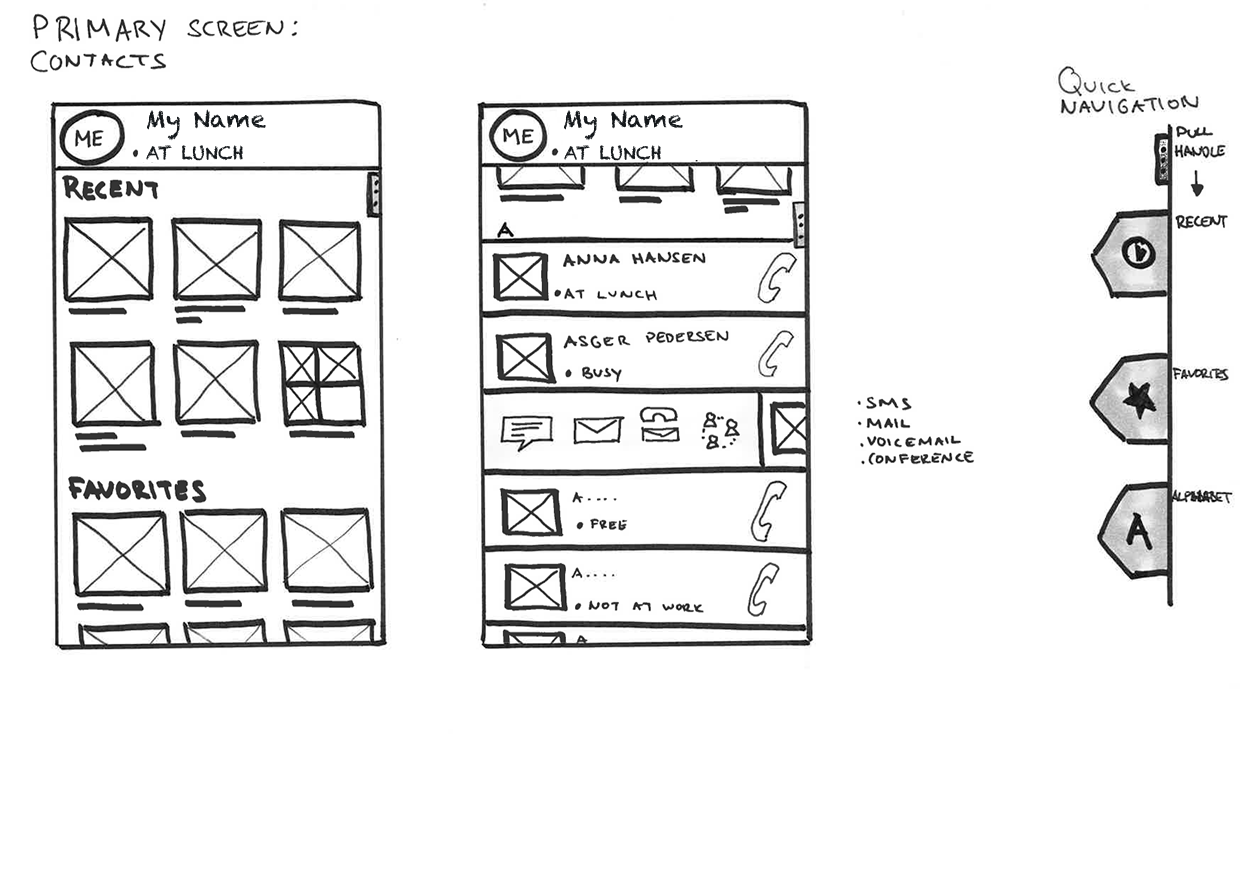 PRIMARY SCREEN:
CONTACTS
ME
My Name
• AT LUNCH
RECENT
FAVORITES
ME
My Name
• AT LUNCH
A
ANNA HANSEN
• AT LUNCH
ASGER PEDERSEN
• BUSY
A....
• FREE
A....
• NOT AT WORK
A
• SMS
• MAIL
• VOICEMAIL
• CONFERENCE
QUICK
NAVIGATION
PULL
HANDLE
RECENT
FAVORITES
ALPHABET
A